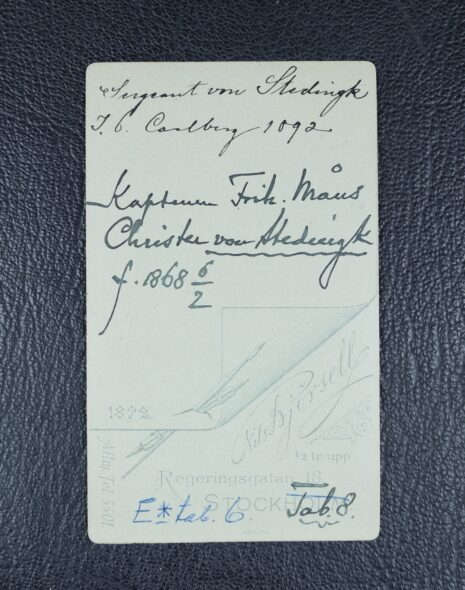 Sergeant von Stedingk
J. 6. Carlberg 1892
Kaptenen Frih. Måns
Christer von Stedingk
f. 1868 6/2
1892.
Nils Björsell
½ tr. upp.
Allm. Tel. 5501
Regeringsgatan 18
STOCKHOLM
E* tab. 6. Tab. 8.